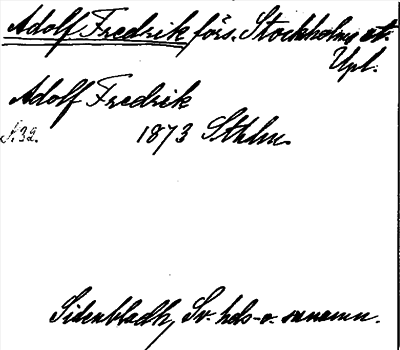 Adolf Fredrik förs. Stockholms st.
Upl.
Adolf Fredrik
S. 32.
1873 Sthlm.
Sidenbladh, Sv. hds- o. snnamn.